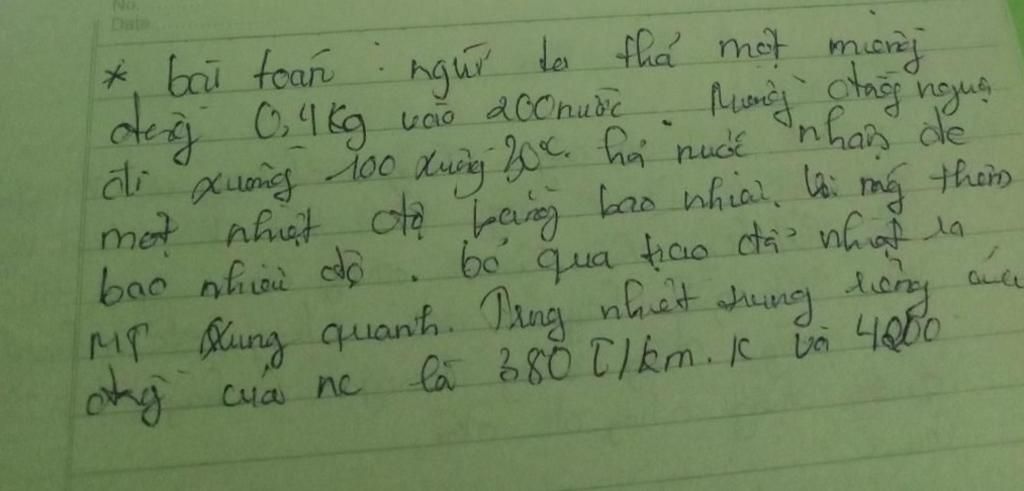 No.
Date
* bài toán : người ta thả một miếng
đồng 0,4kg vào 200 nước. Miếng đồng nguội
đi xuống 100 xuống 30°c. hỏi nước nhận đc
một nhiệt độ bằng bao nhiêu. thêm
bao nhiêu độ. bỏ qua trao đổi nhiệt ra
MT xung quanh. nhiệt dung riêng của
đồng của nc là 380 J/km.K và 4200